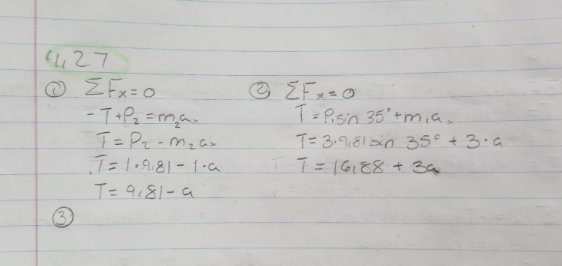 4,27
① ΣFx=0
-T+P₂=m₂aₓ
T=P₂-m₂aₓ
T=1·9,81-1·a
T=9,81-a
② ΣFx=0
T=P₁sin 35°+m₁aₓ
T=3·9,81sin 35°+3·a
T=16,88+3a
③